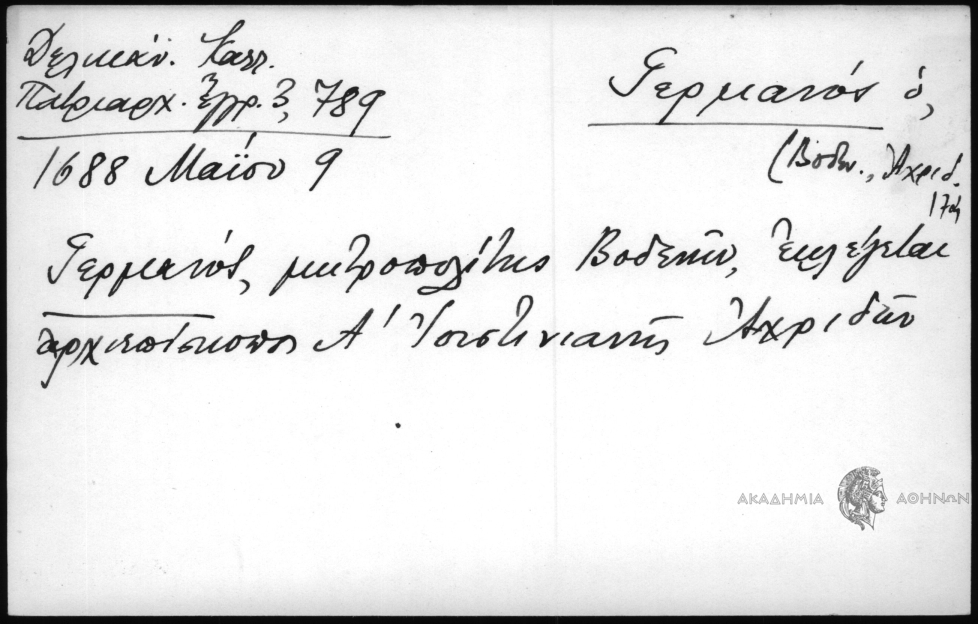 Δελικάν. Καλλ.
Πατριαρχ. Ἔγγρ. 3, 789
1688 Μαΐου 9
Γερμανός ὁ,
(Βοδεν., Ἀχριδ.
17ος
Γερμανός, μητροπολίτης Βοδενῶν, ἐκλέγεται
ἀρχιεπίσκοπος Α' Ἰουστινιανῆς Ἀχριδῶν
ΑΚΑΔΗΜΙΑ ΑΘΗΝΩΝ